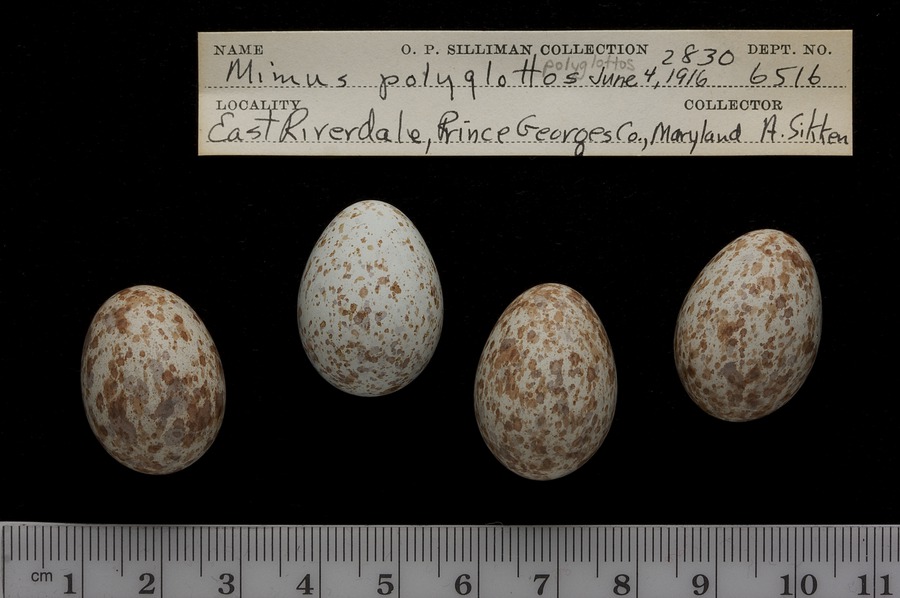 NAME O. P. SILLIMAN COLLECTION 2830 DEPT. NO.
polyglottos
Mimus polyglottos June 4, 1916 6516
LOCALITY COLLECTOR
East Riverdale, Prince Georges Co., Maryland A. Sikken
cm 1 2 3 4 5 6 7 8 9 10 11